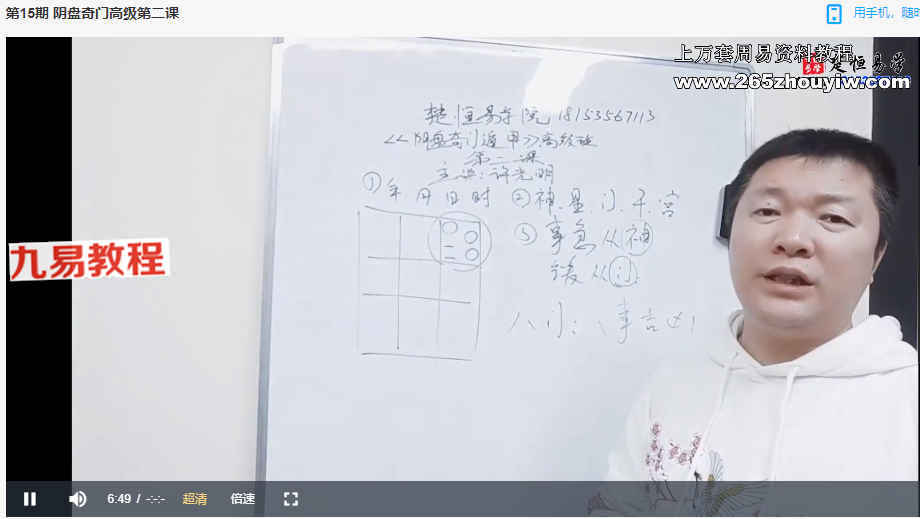 第15期 阴盘奇门高级第二课
用手机，随时
上万套周易资料教程
楚恒易学
www.265zhouyiw.com
楚恒易学院 18153567113
<<阴盘奇门遁甲>>高级班
第二课
主讲：许光明
①年月日时 ②神.星.门.干.宫
③事急从神
缓从门
八门：、事吉凶
九易教程
6:49 / -:-:-
超清
倍速